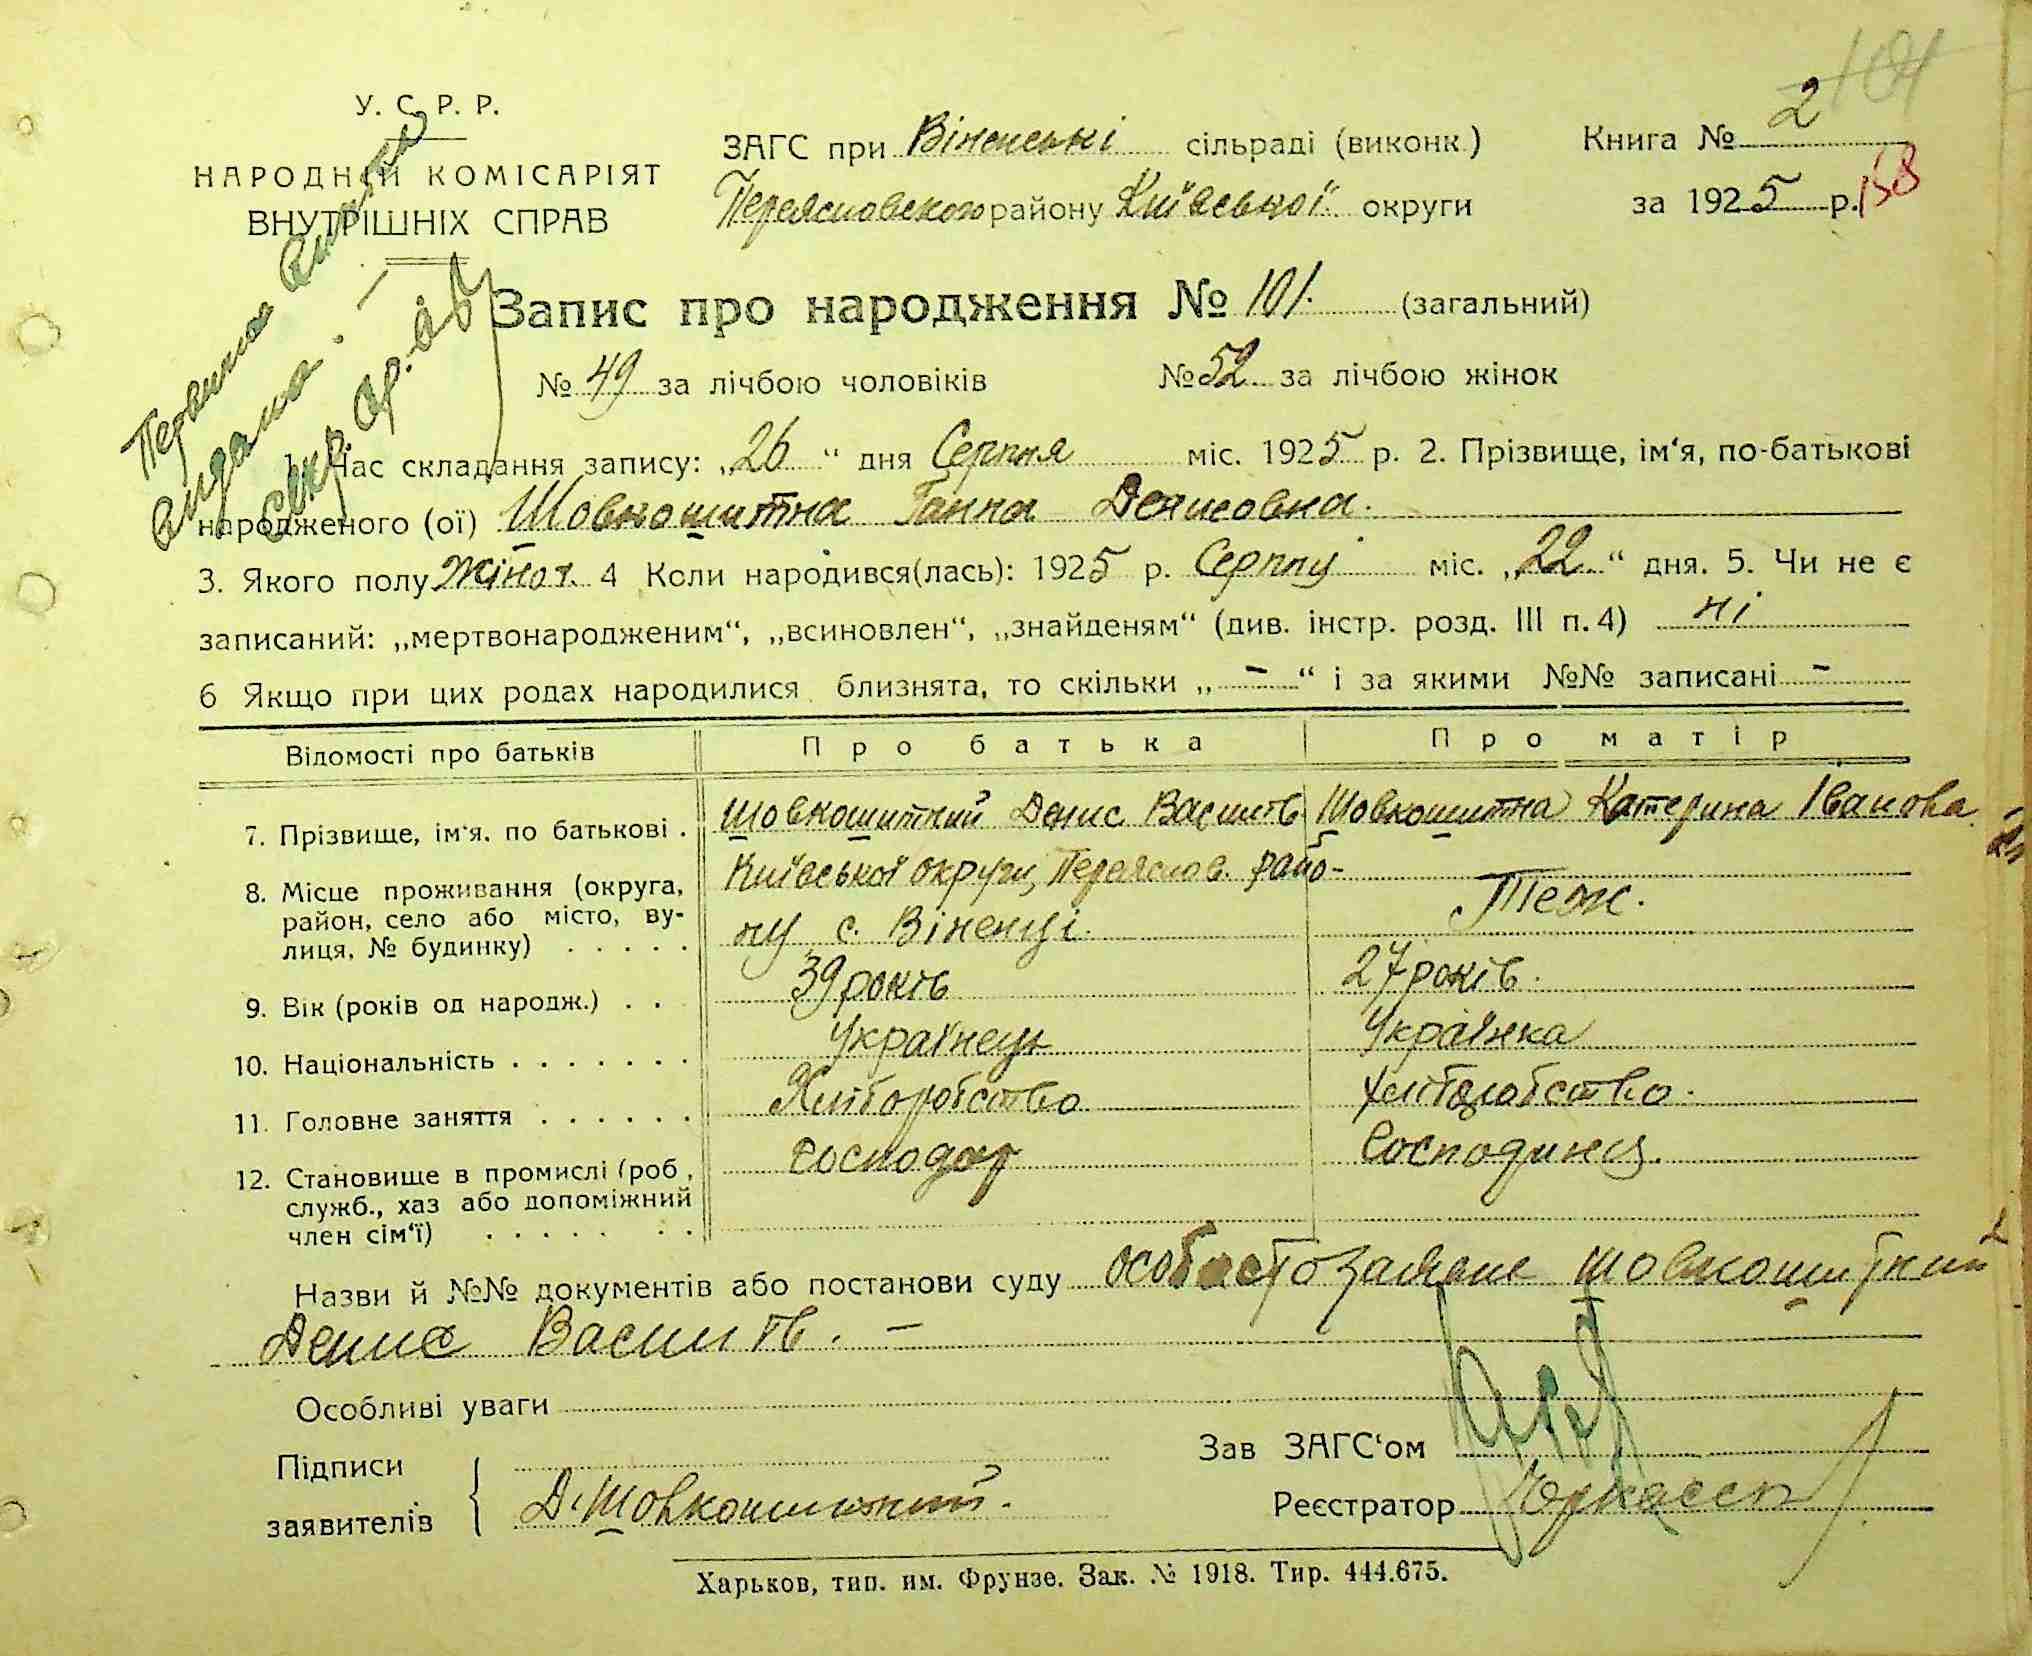 101
У. С. Р. Р.
НАРОДНІЙ КОМІСАРІЯТ
ВНУТРІШНІХ СПРАВ
ЗАГС при Віненські сільраді (виконк.)
Переясловского району Київської округи
Книга № 2
за 1925 р. 158
Первична виписка
видана. —
Секр.
Запис про народження № 101. (загальний)
№ 49 за лічбою чоловіків № 52 за лічбою жінок
1. Час складання запису: „26“ дня Серпня міс. 1925 р. 2. Прізвище, ім‘я, по-батькові
народженого (ої) Шовкошитна Ганна Денисовна.
3. Якого полу Жіноч. 4 Коли народився(лась): 1925 р. Серпну міс. „22“ дня. 5. Чи не є
записаний: „мертвонародженим“, „всиновлен“, „знайденям“ (див. інстр. розд. III п. 4) ні
6 Якщо при цих родах народилися близнята, то скільки „ – “ і за якими №№ записані –
Відомості про батьків Про батька Про матір
7. Прізвище, ім‘я. по батькові . Шовкошитний Денис Василів Шовкошитна Катерина Іванова
8. Місце проживання (округа, район, село або місто, вулиця, № будинку) . . . . .
Київської округи, Переяслов. райо-
ну с. Віненці.
Теж.
9. Вік (років од народж.) . . 39 років 27 років.
10. Національність . . . . . . . Українець Українка
11. Головне заняття . . . . . . Хліборобство хліборобство.
12. Становище в промислі (роб., служб., хаз або допоміжний член сім‘ї) . . . . . . . господар Господиня.
Назви й №№ документів або постанови суду особисто заявив Шовкошитний
Денис Василів. –
Особливі уваги
Підписи
заявителів
Д. Шовкошитний.
Зав ЗАГС‘ом
Реєстратор
Харьков, тип. им. Фрунзе. Зак. № 1918. Тир. 444.675.